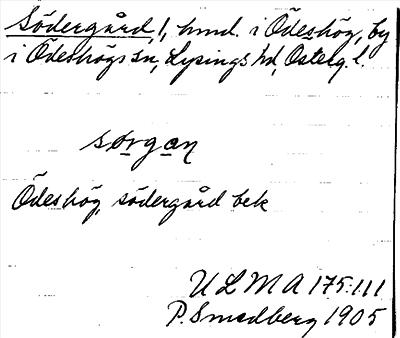 Södergård, l, hmd. i Ödeshög, by
i Ödeshögs sn, Lysings hd, Österg. l.
sørgan
Ödeshög, södergård bek
ULMA 175:111
P. Smedberg 1905